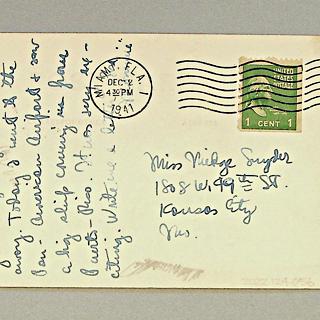 the
away. Today I went to the
Pan American Airport & saw
a big ship coming in from
Puerto-Rico. It was very ex-
citing. Write me a
MIAMI, FLA.
DEC 2
4 30 PM
1941
UNITED
STATES
POSTAGE
1 CENT 1
Miss Snyder
1808 W. 49th St.
Kansas City
Mo.